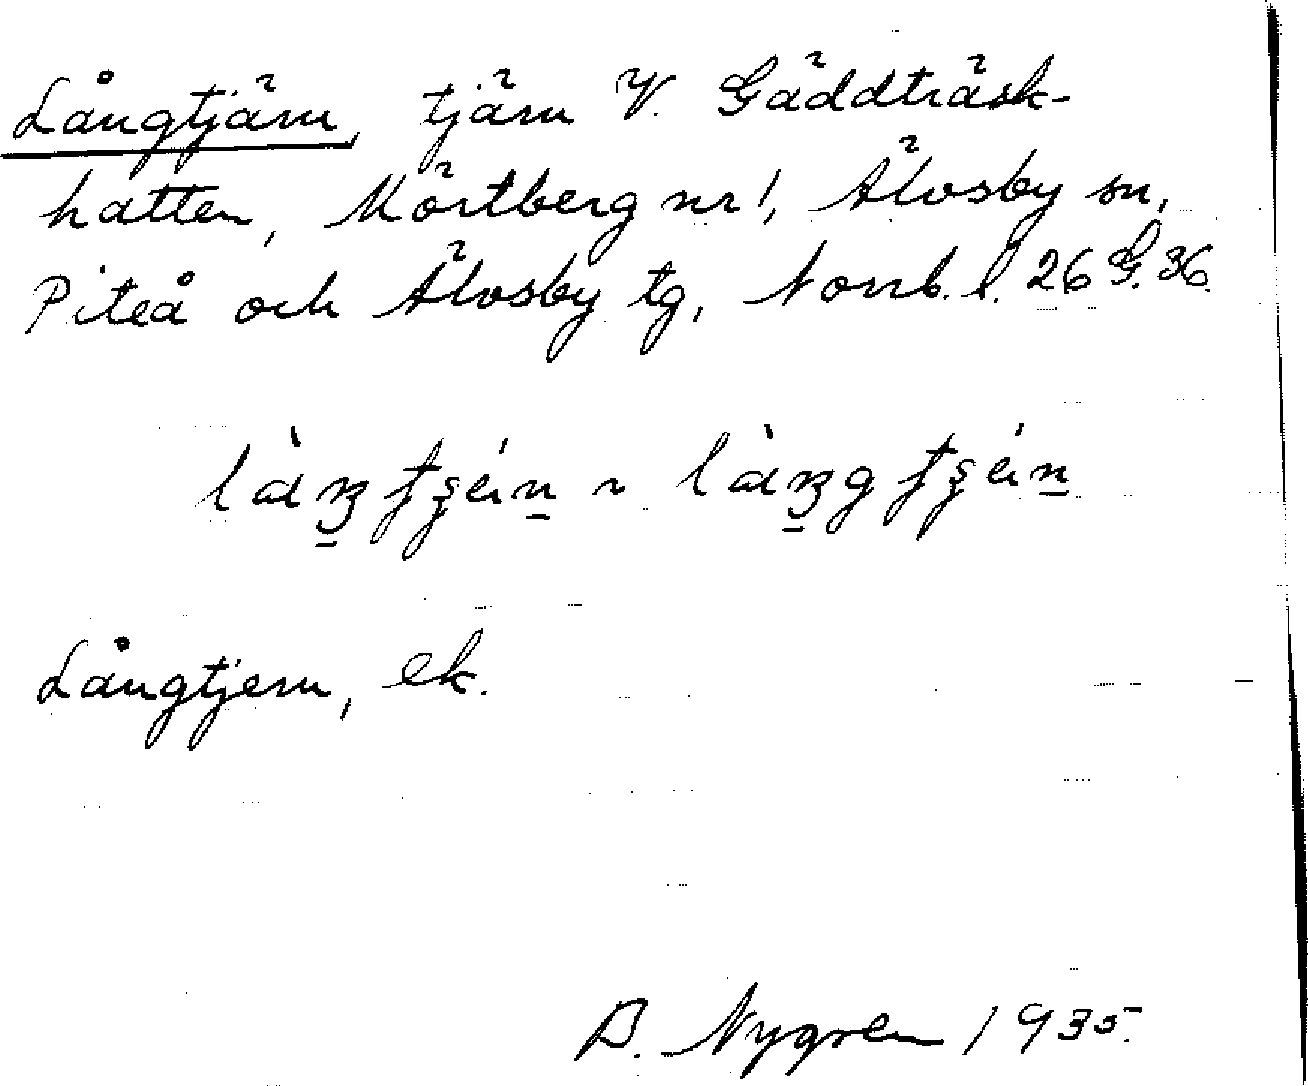 Långtjärn, tjärn V. Gäddträsk-
hatten, Mörtberg nr 1, Älvsby sn,
Piteå och Älvsby tg, Norrb. l. 26 G. 36.
Långtjern, ek.
B. Nygren 1935.